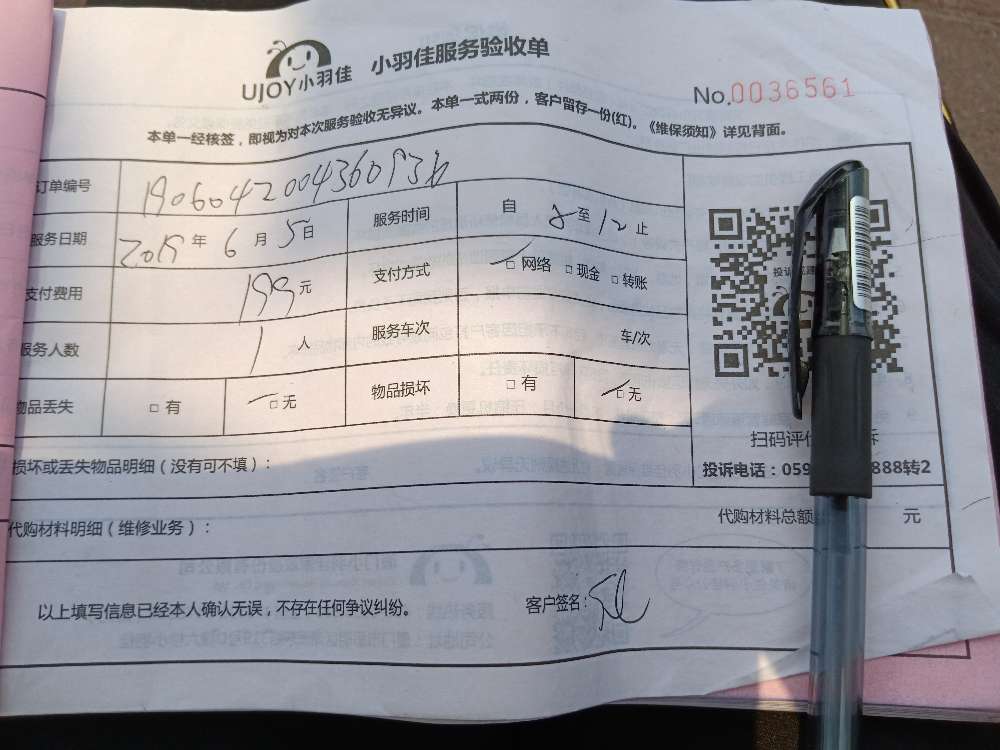 UJOY小羽佳 小羽佳服务验收单
No.0036561
本单一经核签，即视为对本次服务验收无异议。本单一式两份，客户留存一份(红)。《维保须知》详见背面。
订单编号
服务日期 2019年6月5日 服务时间 自8至12止
支付费用 199元 支付方式 □网络 □现金 □转账
服务人数 1人 服务车次 车/次
物品丢失 □有 □无 物品损坏 □有 □无
扫码评
投诉电话：059 888转2
损坏或丢失物品明细（没有可不填）：
代购材料明细（维修业务）： 代购材料总额 元
以上填写信息已经本人确认无误，不存在任何争议纠纷。 客户签名：